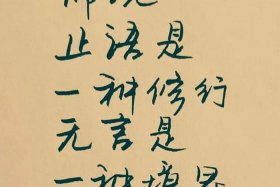 止语是
一种修行
无言是
一种境界